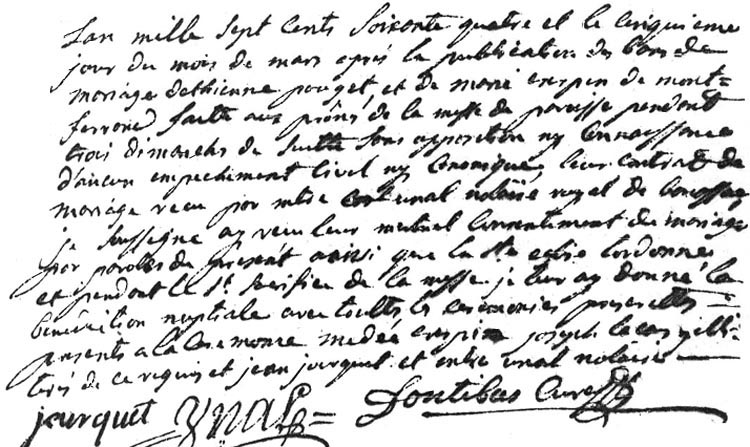 Lan mille sept cents Soixante quatre et le cinquieme
jour du mois de mars aprés la publication des bans de
mariage dethienne pouget et de marie crespin de mont=
ferrand faitte aux prônes de la messe de paroisse pendant
trois dimanches de suitte sans opposition ny connaissance
d'aucun empechiment civil ny canonique, leur contrat de
mariage recu par mtre unal notaire royal de
je soussigne ay recu leur mutuel consentiment du mariage
par paroles du présent ainsi que la ste eglise lordonne
et pendant le st sacrifice de la messe je leur ay donné la
bénédiction nuptiale avec touttes les ceremonies
presents a la ceremonie crespin joseph
de ce requis et jean jourquet et unal notaire
jourquet Ynal= Curé